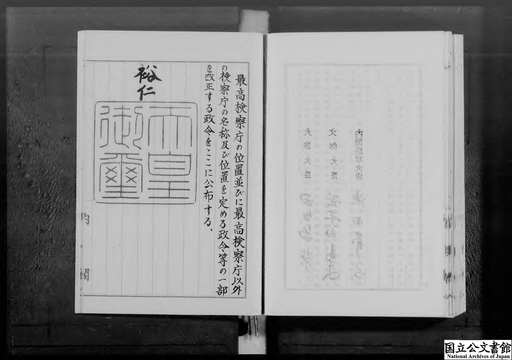 最高検察庁の位置並びに最高検察庁以外
の検察庁の名称及び位置を定める政令等の一部
を改正する政令をここに公布する。
裕仁
天皇
御璽
内閣
国立公文書館
National Archives of Japan